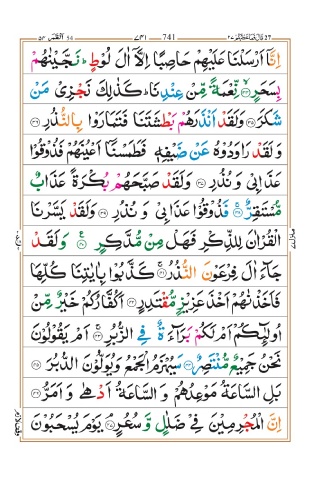 741
اِنَّاۤ اَرْسَلْنَا عَلَيْهِمْ حَاصِبًا اِلَّاۤ اٰلَ لُوْطٍ ؕ نَجَّيْنٰهُمْ
بِسَحَرٍ ۙ﴿۳۴﴾ نِّعْمَةً مِّنْ عِنْدِنَا ؕ كَذٰلِكَ نَجْزِيْ مَنْ
شَكَرَ ﴿۳۵﴾ وَلَقَدْ اَنْذَرَهُمْ بَطْشَتَنَا فَتَمَارَوْا بِالنُّذُرِ ﴿۳۶﴾
وَلَقَدْ رَاوَدُوْهُ عَنْ ضَيْفِهٖ فَطَمَسْنَاۤ اَعْيُنَهُمْ فَذُوْقُوْا
عَذَابِيْ وَ نُذُرِ ﴿۳۷﴾ وَلَقَدْ صَبَّحَهُمْ بُكْرَةً عَذَابٌ
مُّسْتَقِرٌّ ﴿۳۸﴾ فَذُوْقُوْا عَذَابِيْ وَ نُذُرِ ﴿۳۹﴾ وَلَقَدْ يَسَّرْنَا
الْقُرْاٰنَ لِلذِّكْرِ فَهَلْ مِنْ مُّدَّكِرٍ ﴿۴۰﴾ وَلَقَدْ
جَآءَ اٰلَ فِرْعَوْنَ النُّذُرُ ﴿۴۱﴾ كَذَّبُوْا بِاٰيٰتِنَا كُلِّهَا
فَاَخَذْنٰهُمْ اَخْذَ عَزِيْزٍ مُّقْتَدِرٍ ﴿۴۲﴾ اَكُفَّارُكُمْ خَيْرٌ مِّنْ
اُولٰٓئِكُمْ اَمْ لَكُمْ بَرَآءَةٌ فِي الزُّبُرِ ﴿۴۳﴾ اَمْ يَقُوْلُوْنَ
نَحْنُ جَمِيْعٌ مُّنْتَصِرٌ ﴿۴۴﴾ سَيُهْزَمُ الْجَمْعُ وَيُوَلُّوْنَ الدُّبُرَ ﴿۴۵﴾
بَلِ السَّاعَةُ مَوْعِدُهُمْ وَ السَّاعَةُ اَدْهٰى وَ اَمَرُّ ﴿۴۶﴾
اِنَّ الْمُجْرِمِيْنَ فِيْ ضَلٰلٍ وَّ سُعُرٍ ﴿۴۷﴾ يَوْمَ يُسْحَبُوْنَ